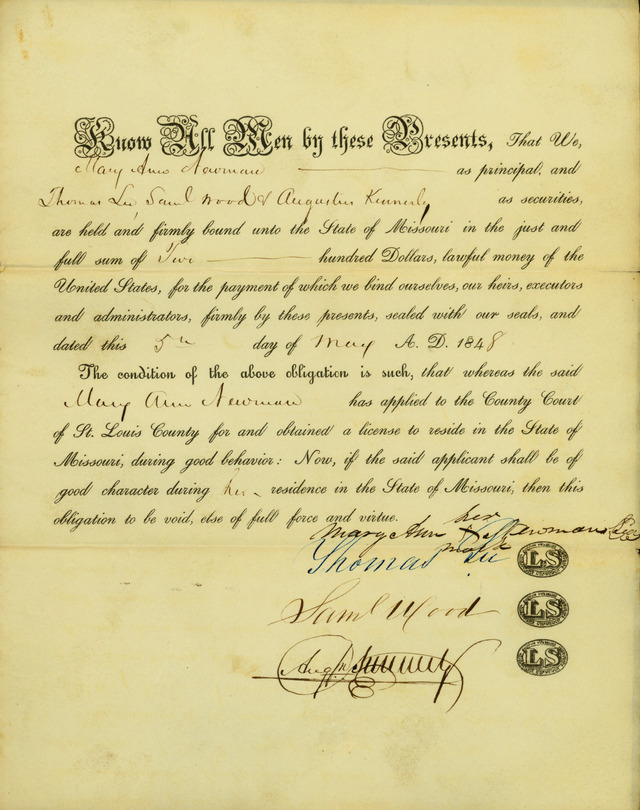 Know All Men by these Presents, That We,
Mary Ann Newman as principal, and
Thomas Lee Saml Wood & Augustus Kennerly as securities,
are held and firmly bound unto the State of Missouri in the just and
full sum of Five hundred Dollars, lawful money of the
United States, for the payment of which we bind ourselves, our heirs, executors
and administrators, firmly by these presents, sealed with our seals, and
dated this 5th day of May A. D. 1848
The condition of the above obligation is such, that whereas the said
Mary Ann Newman has applied to the County Court
of St. Louis County for and obtained a license to reside in the State of
Missouri, during good behavior: Now, if the said applicant shall be of
good character during her residence in the State of Missouri, then this
obligation to be void, else of full force and virtue.
her
Mary Ann x Newman
mark
Thomas Lee LS
Saml Wood LS
LS